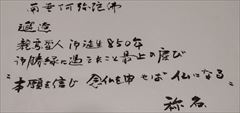 南無阿弥陀佛
親鸞聖人御誕生850年
御勝縁に遇えたこと最上の慶び
"本願を信じ 念仏を申せば 仏になる"
称名